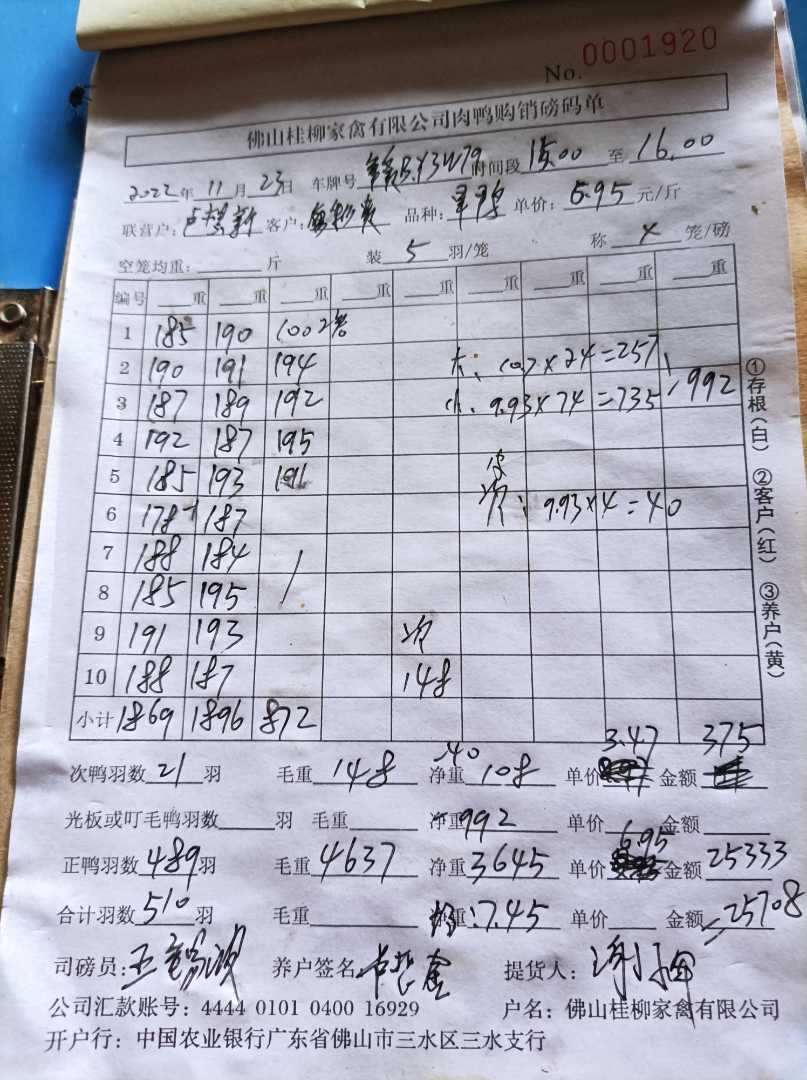 No. 0001920
佛山桂柳家禽有限公司肉鸭购销磅码单
2022年 11月 23日 车牌号 时间段 15:00 至 16:00
联营户: 客户: 品种: 单价: 6.95 元/斤
空笼均重: 斤 装 5 羽/笼 称 4 笼/磅
编号 重 重 重 重 重 重 重 重 重
1 185 190 100
2 190 191 194 大、10.7×24=257
3 187 189 192 小、9.93×74=735 992
4 192 187 195
5 185 193 191
6 178 187 次: 9.93×4=40
7 188 184
8 185 195
9 191 193 次
10 188 187 148
小计 1869 1896 872
次鸭羽数 21 羽 毛重 148 -40 净重 108 单价 3.47 金额 375
光板或叮毛鸭羽数 羽 毛重 净重 992 单价 金额
正鸭羽数 489 羽 毛重 4637 净重 3645 单价 6.95 金额 25333
合计羽数 510 羽 毛重 净重 :7.45 单价 金额 25708
司磅员: 养户签名 提货人:
公司汇款账号: 4444 0101 0400 16929 户名: 佛山桂柳家禽有限公司
开户行: 中国农业银行广东省佛山市三水区三水支行
①存根(白) ②客户(红) ③养户(黄)